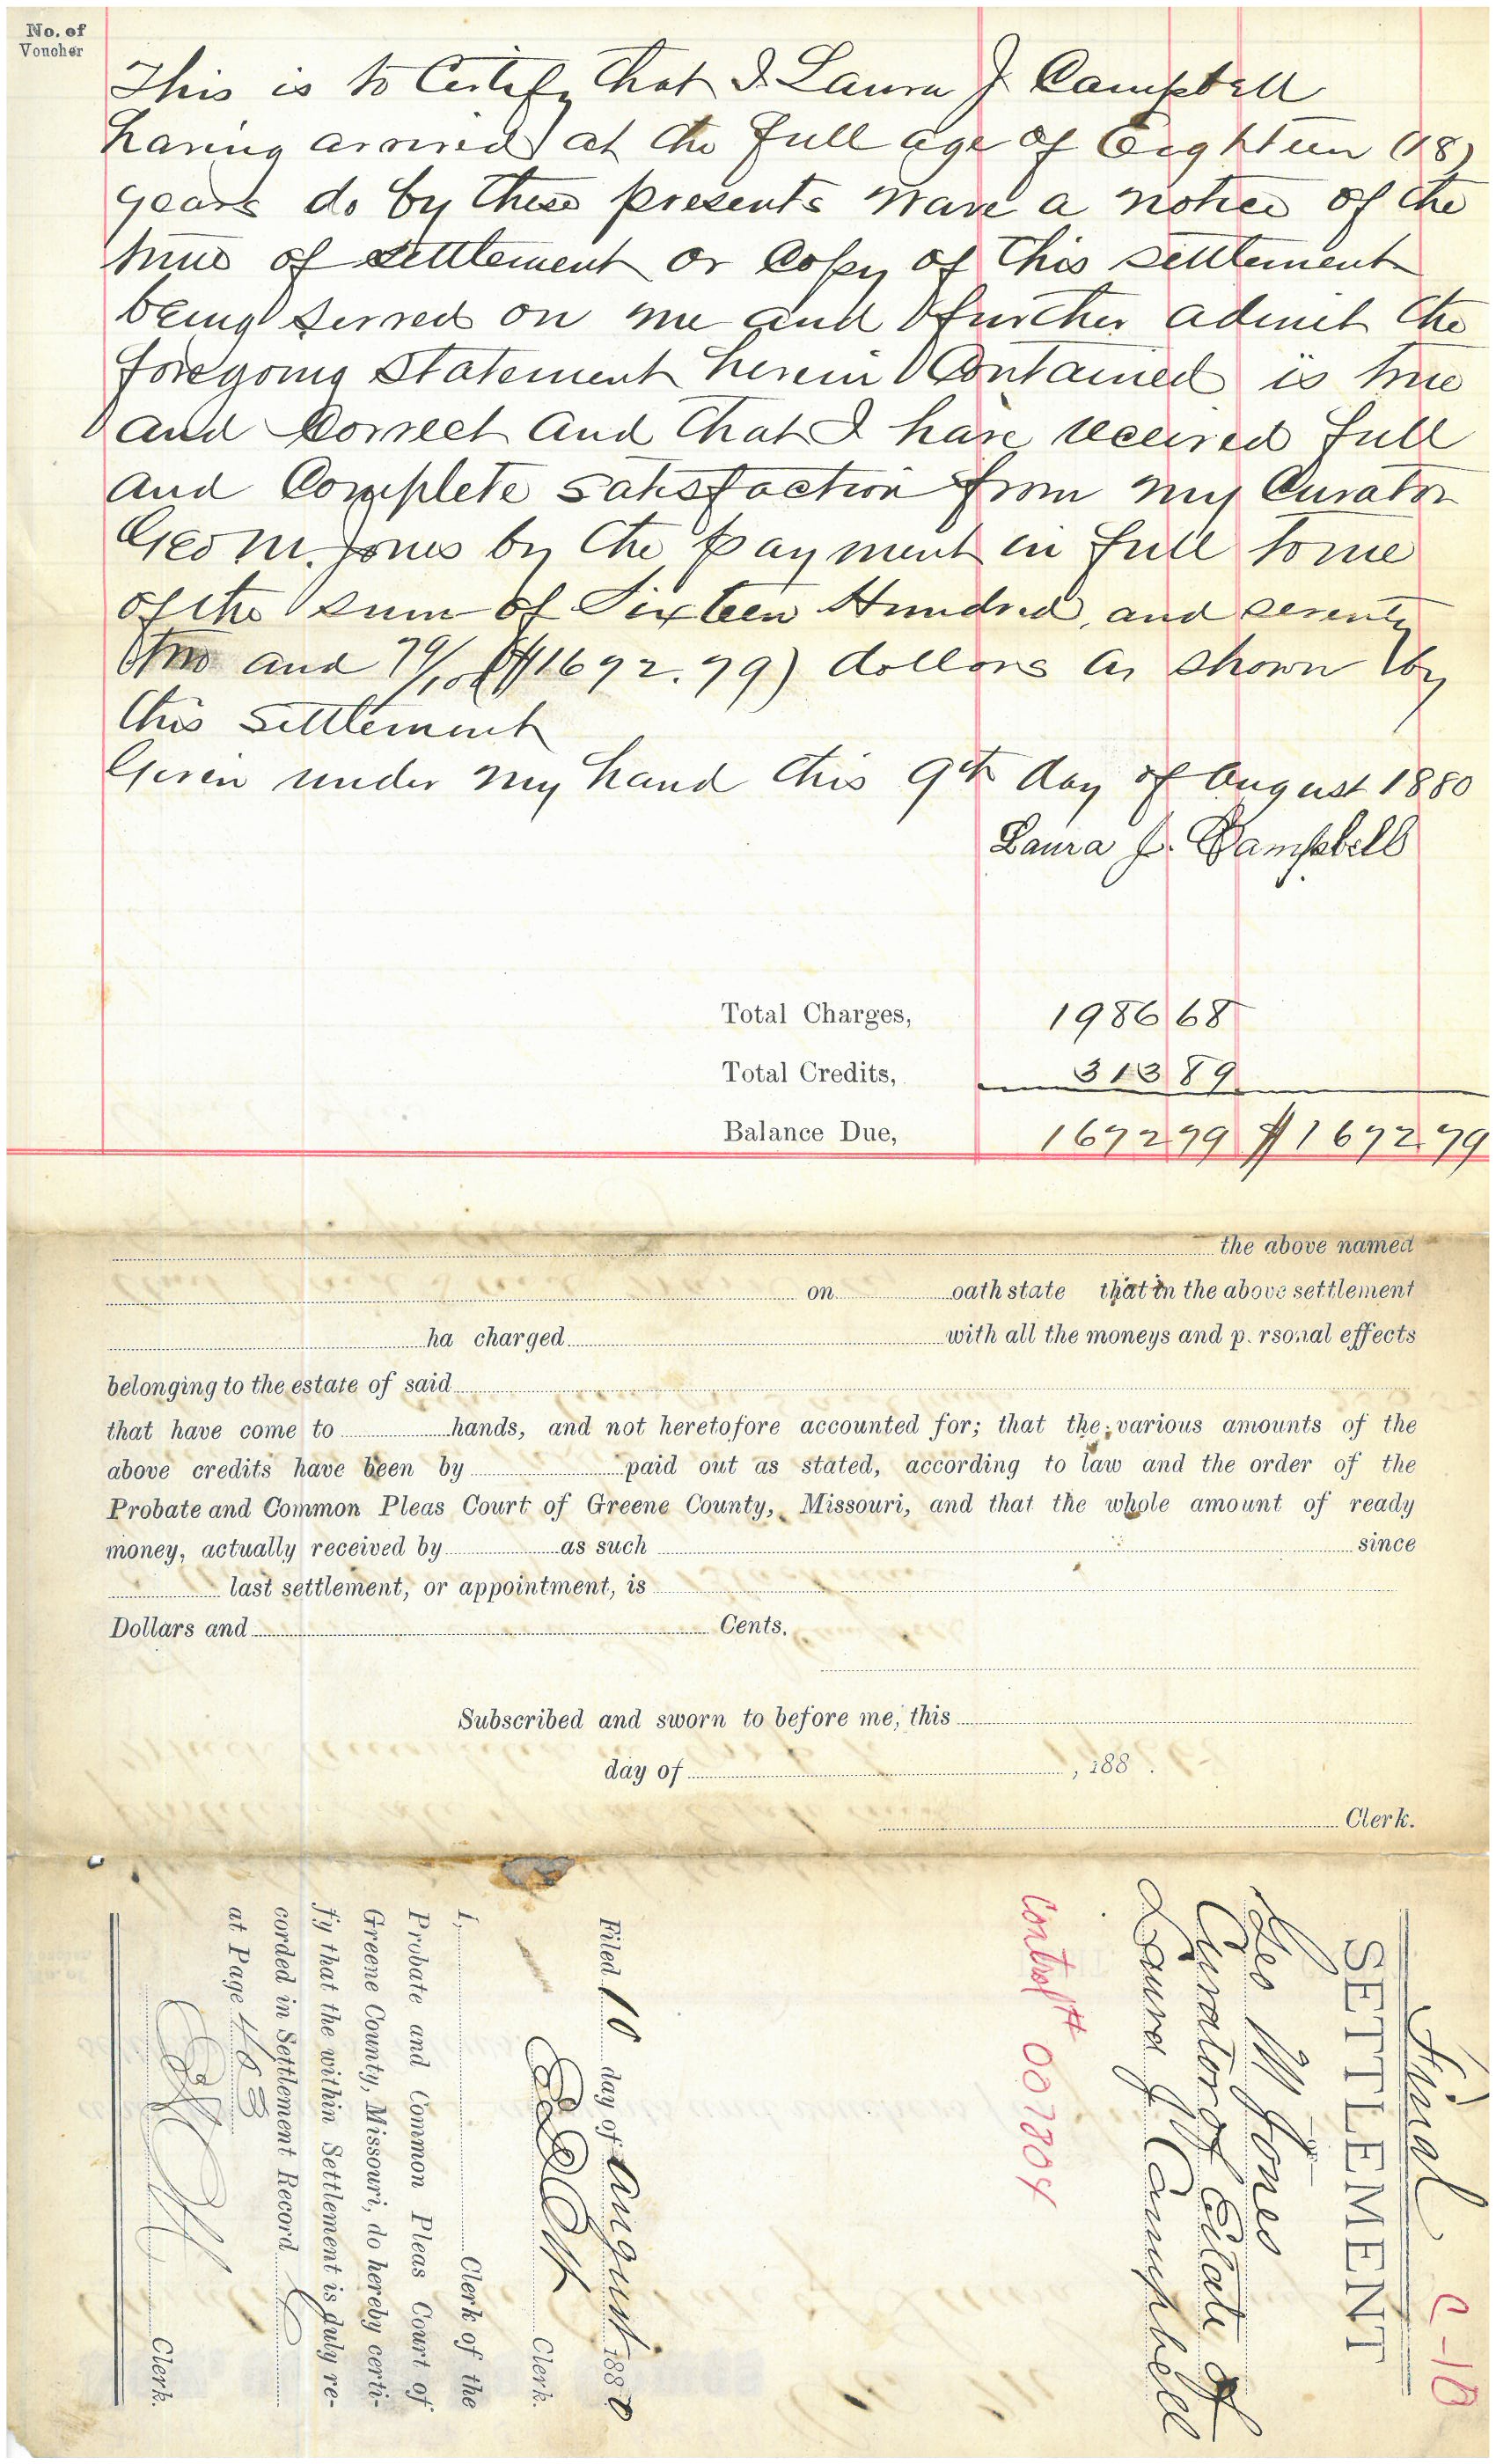 No. of
Voucher
This is to Certify that I Laura J Campbell
having arrived at the full age of Eighteen (18)
years do by these presents wave a notice of the
time of settlement or Copy of this settlement
being served on me and further admit the
foregoing statement herein Contained is true
and Correct and that I have received full
and Complete satisfaction from my Curator
Geo M. Jones by the payment in full to me
of the sum of Sixteen Hundred, and seventy
two and 79/100 ($1672.79) dollars as shown by
this settlement
Given under my hand this 9th day of August 1880
Laura J. Campbell
Total Charges, 1986 68
Total Credits, 313 89
Balance Due, 1672 79 $1672.79
the above named
on oath state that in the above settlement
ha charged with all the moneys and p.rsonal effects
belonging to the estate of said
that have come to hands, and not heretofore accounted for; that the various amounts of the
above credits have been by paid out as stated, according to law and the order of the
Probate and Common Pleas Court of Greene County, Missouri, and that the whole amount of ready
money, actually received by as such since
last settlement, or appointment, is
Dollars and Cents.
Subscribed and sworn to before me, this
day of , 188 .
Clerk.
C-10
Final
SETTLEMENT
Geo M Jones
Curator of Estate of
Laura J Campbell
Control# 007804
Filed 10 day of August 1880
Clerk.
I, Clerk of the
Probate and Common Pleas Court of
Greene County, Missouri, do hereby certi-
fy that the within Settlement is duly re-
corded in Settlement Record C
at Page 403
Clerk.